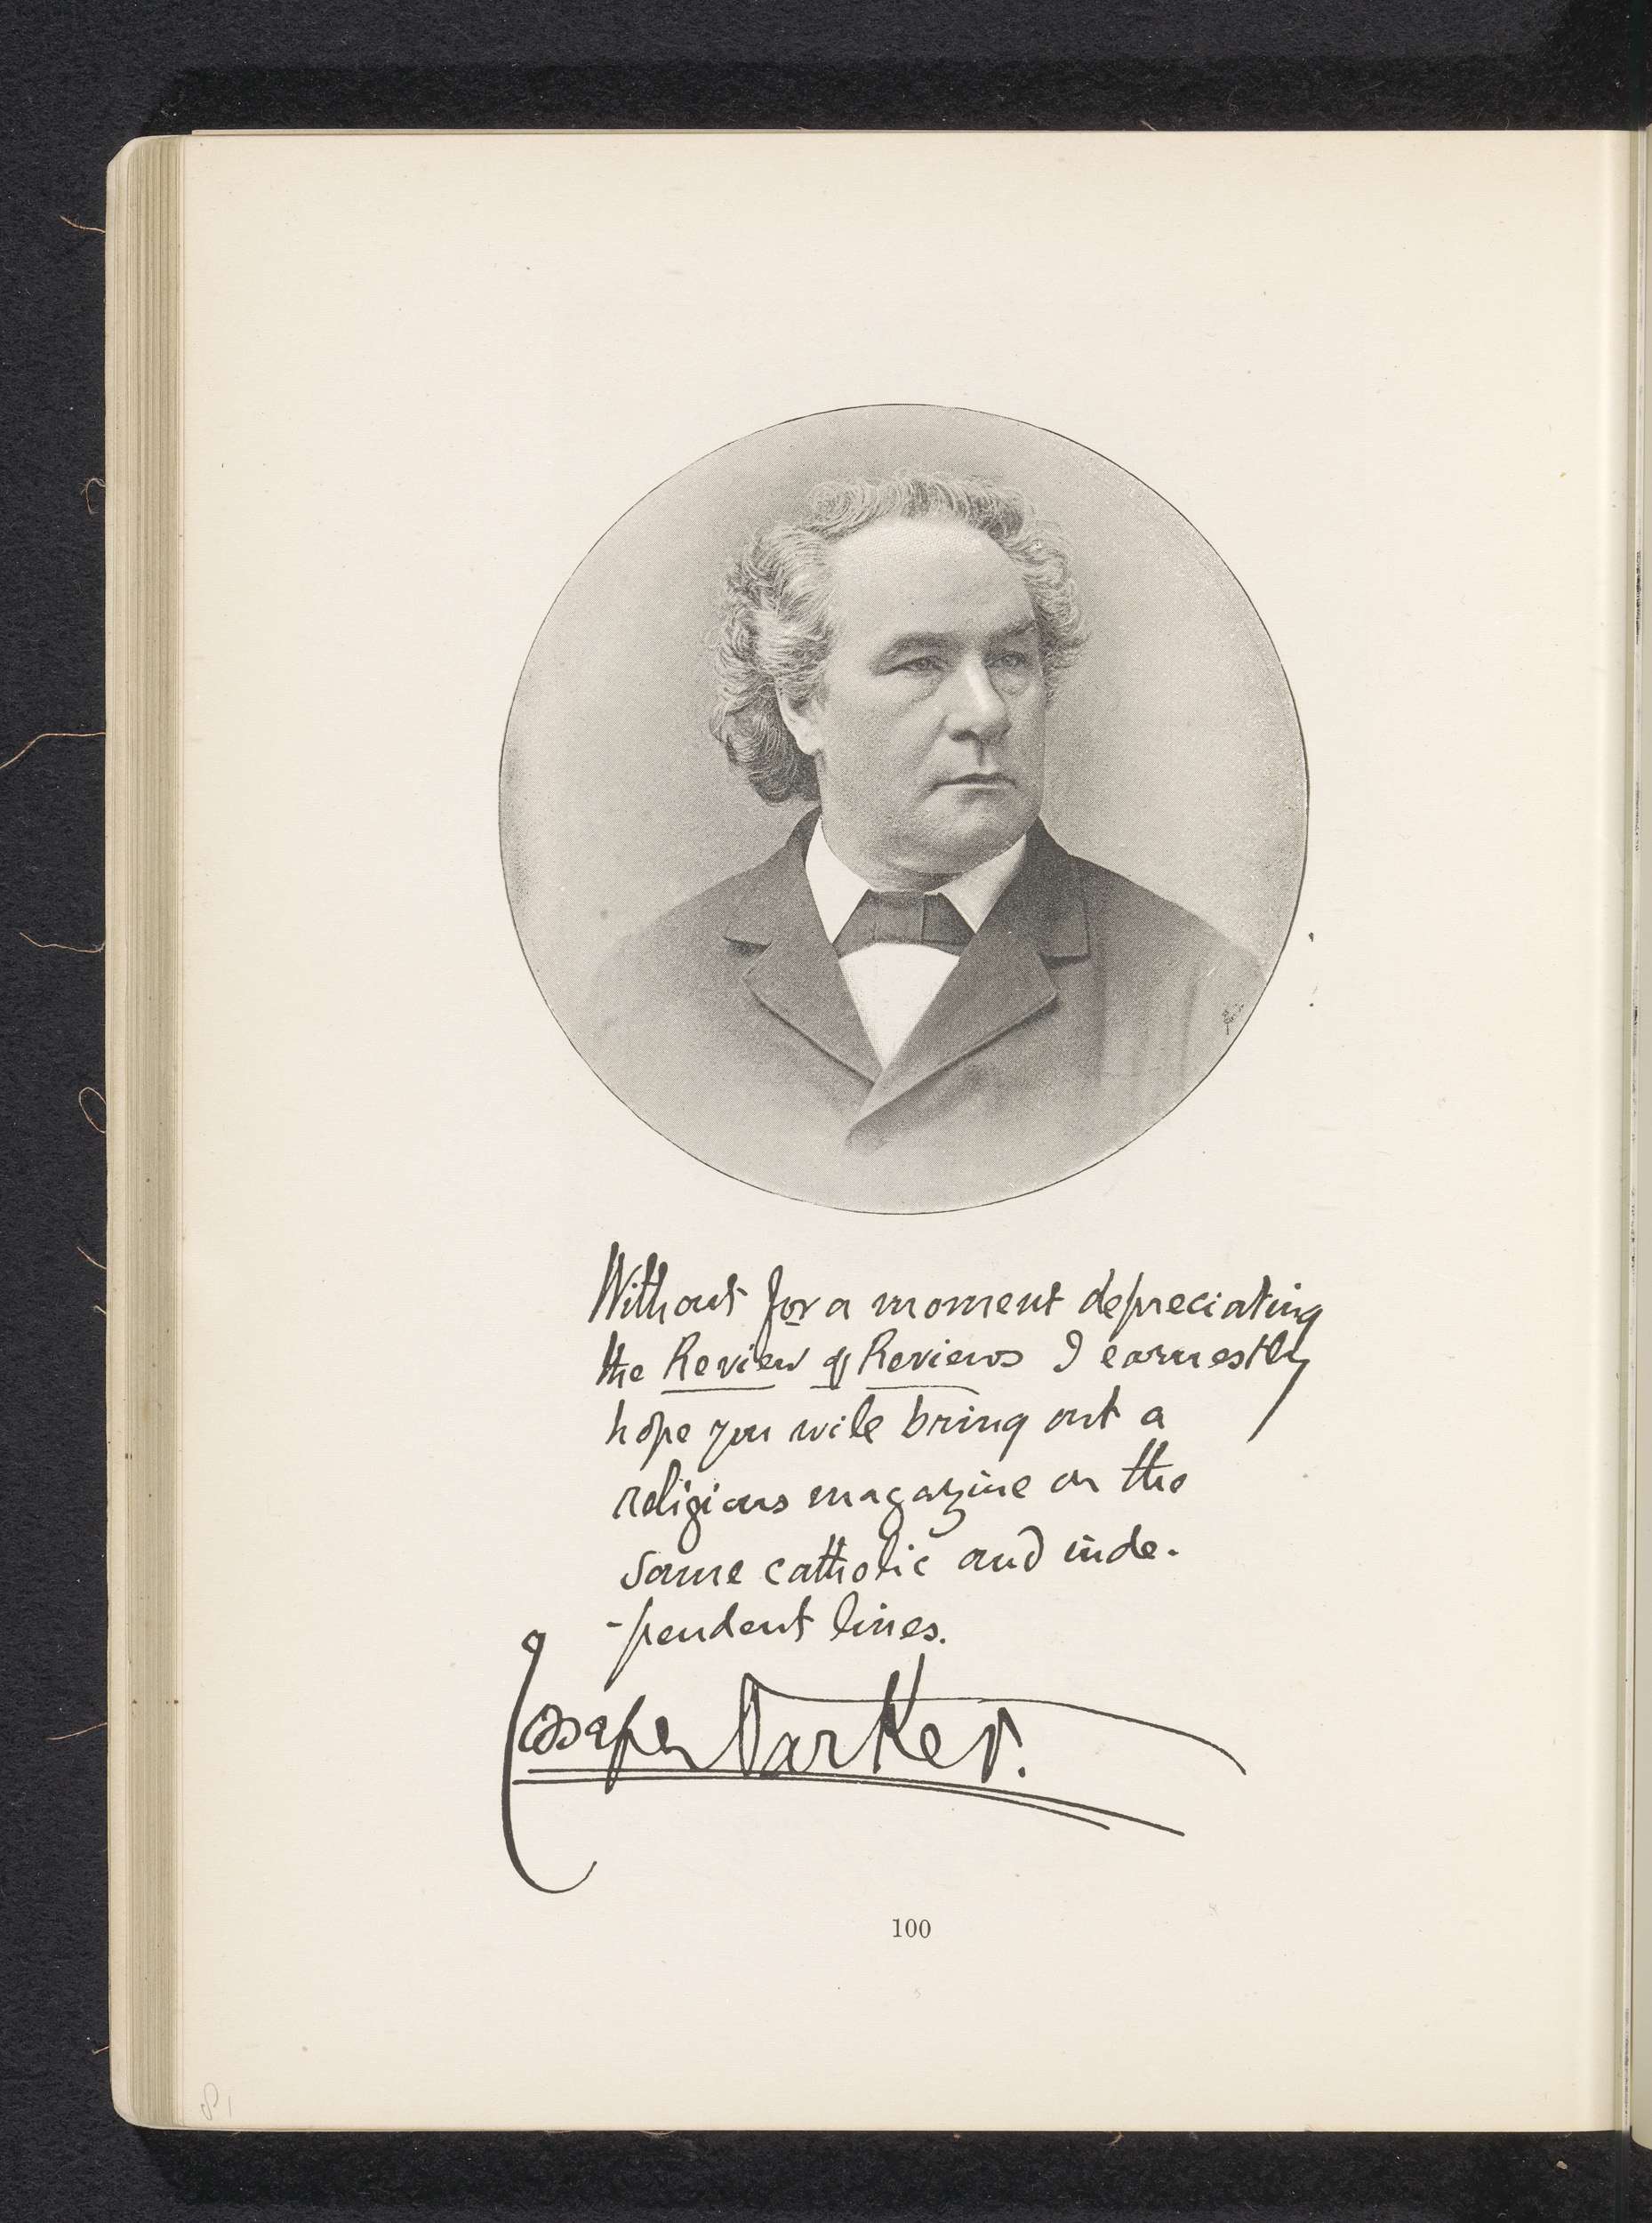 Without for a moment depreciating
the Review of Reviews I earnestly
hope you will bring out a
religious magazine on the
same catholic and inde-
-pendent lines.
Joseph Parker.
100